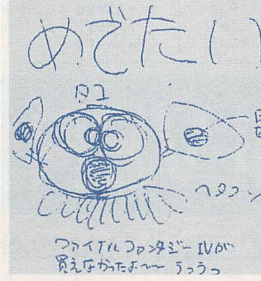 めでたい
タコ
ヘタクソ
ファイナルファンタジーⅣが
買えなかったよ〜〜 うっうっ